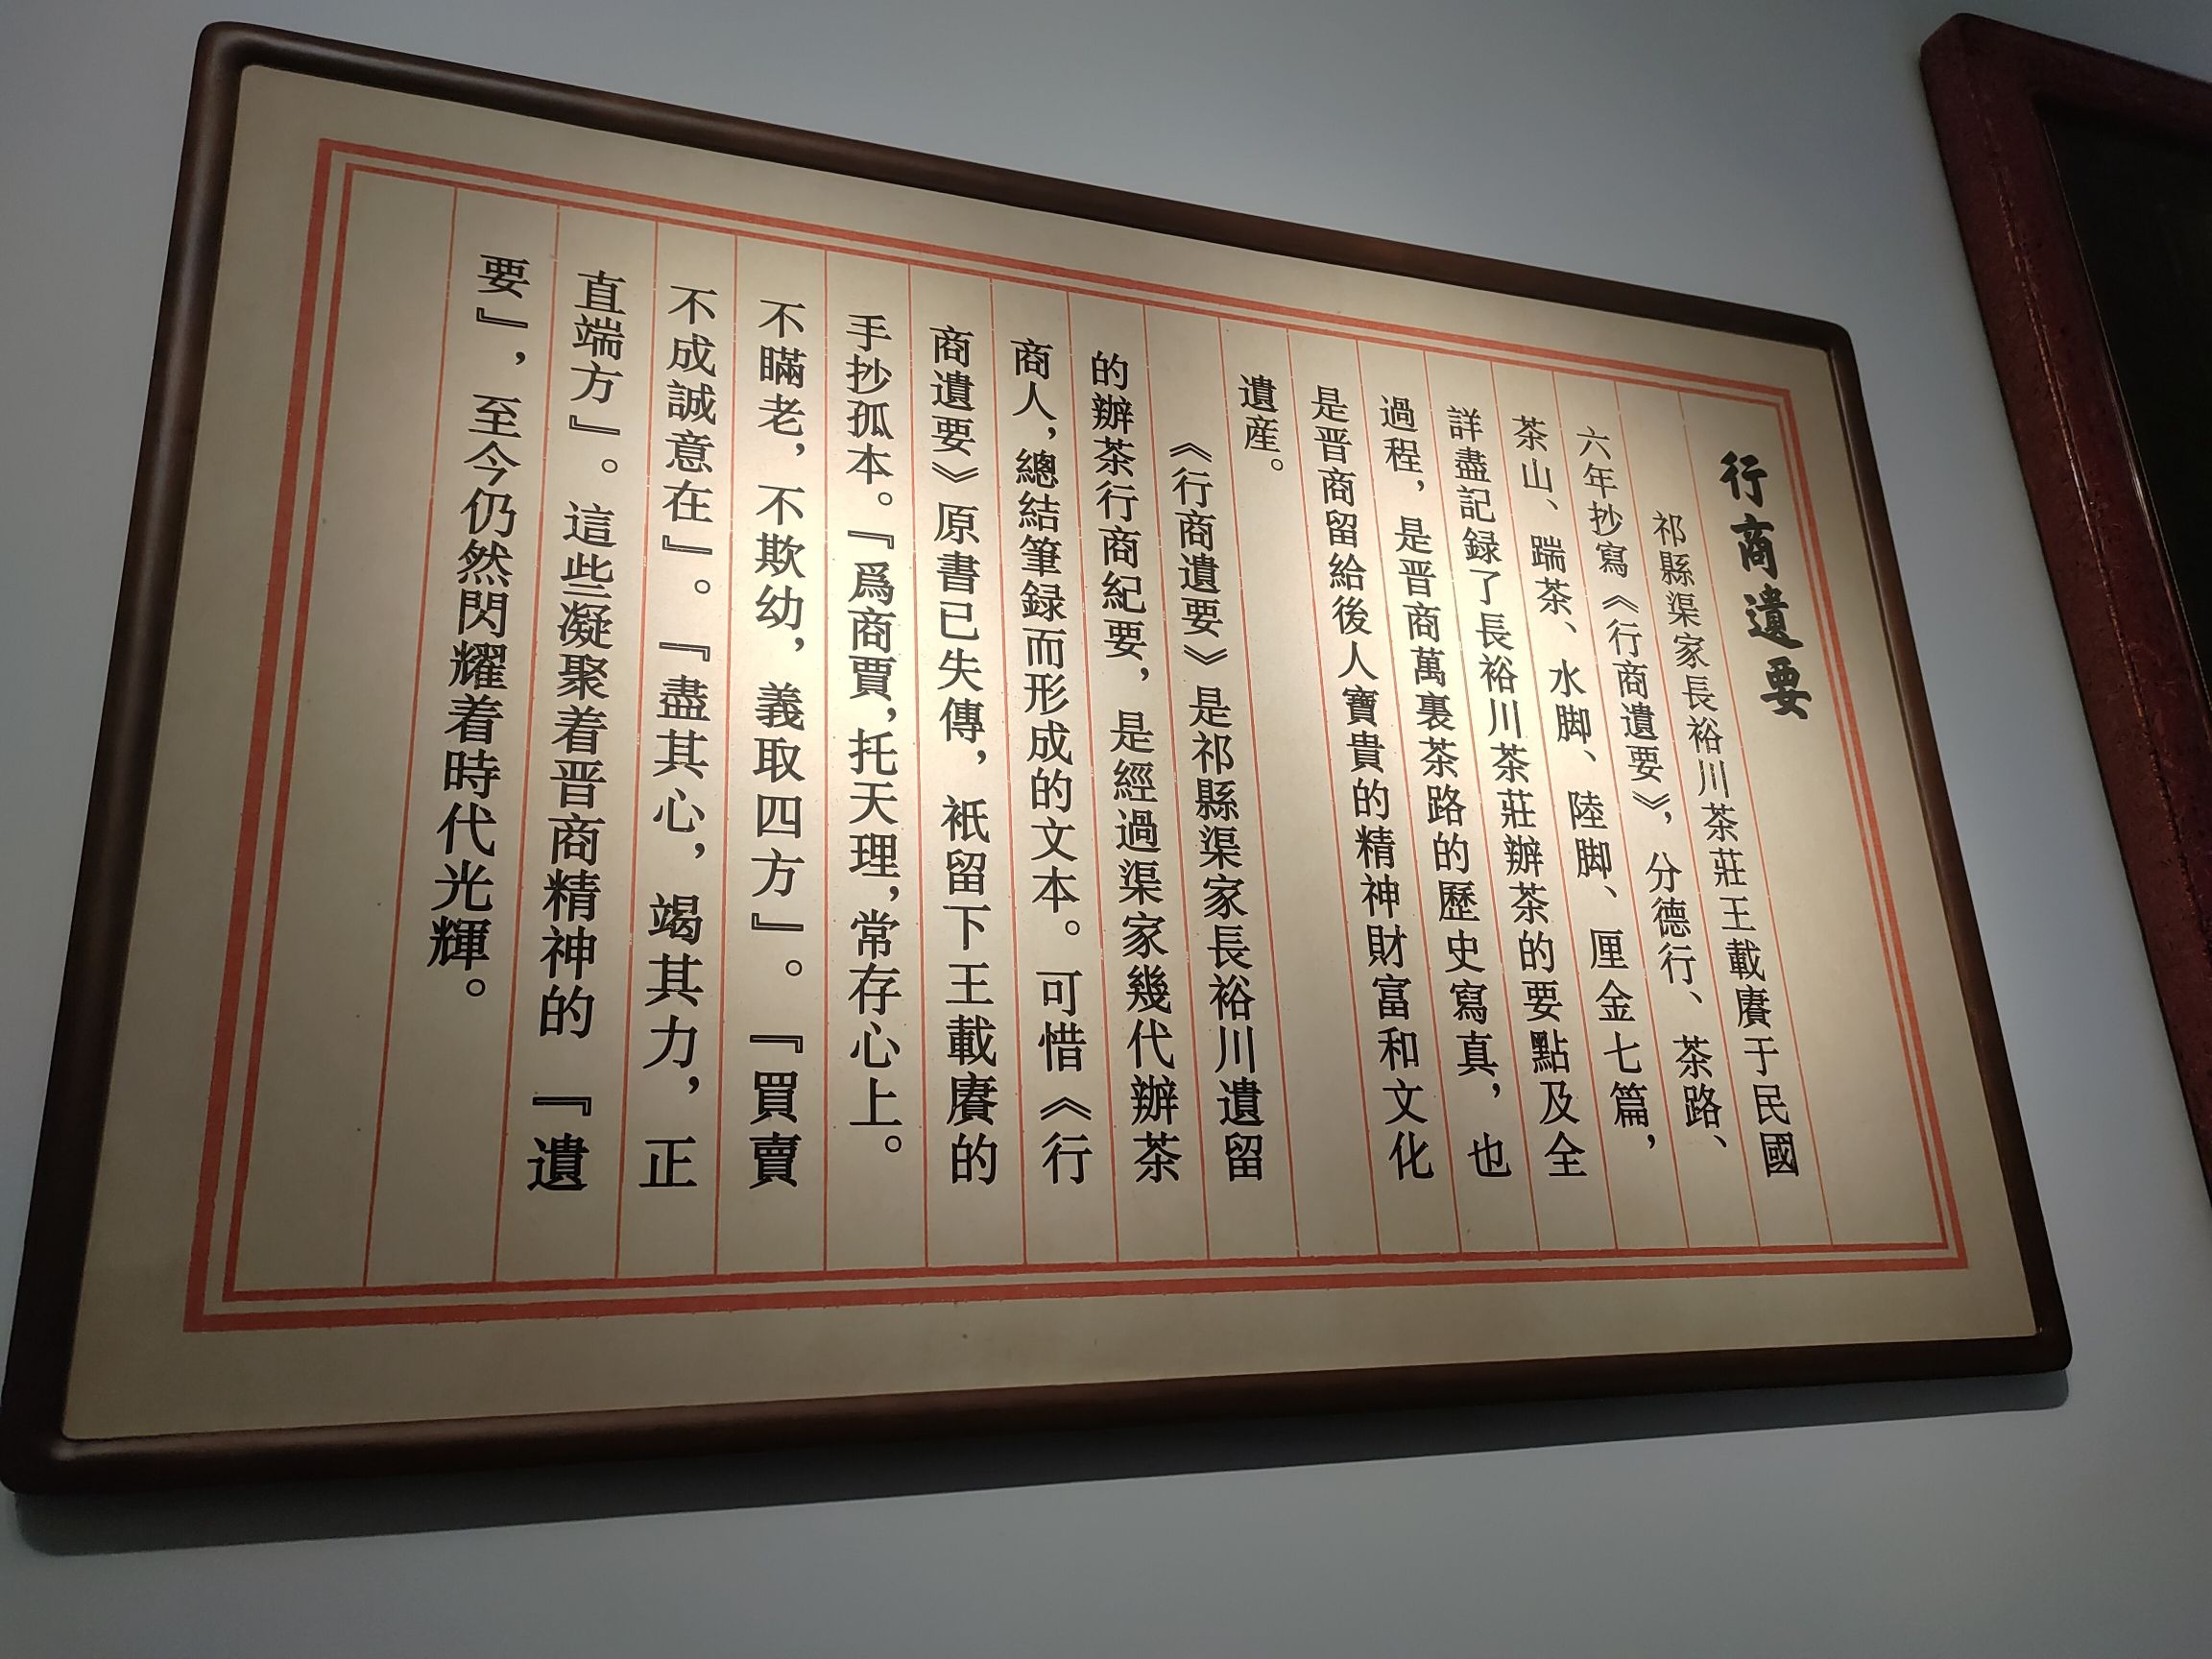 行商遺要
祁縣渠家長裕川茶莊王載賡于民國
六年抄寫《行商遺要》，分德行、茶路、
茶山、踹茶、水脚、陸脚、厘金七篇，
詳盡記録了長裕川茶莊辦茶的要點及全
過程，是晋商萬裏茶路的歷史寫真，也
是晋商留給後人寶貴的精神財富和文化
遺産。
《行商遺要》是祁縣渠家長裕川遺留
的辦茶行商紀要，是經過渠家幾代辦茶
商人，總結筆録而形成的文本。可惜《行
商遺要》原書已失傳，祇留下王載賡的
手抄孤本。『爲商賈，托天理，常存心上。
不瞞老，不欺幼，義取四方』。『買賣
不成誠意在』。『盡其心，竭其力，正
直端方』。這些凝聚着晋商精神的『遺
要』，至今仍然閃耀着時代光輝。